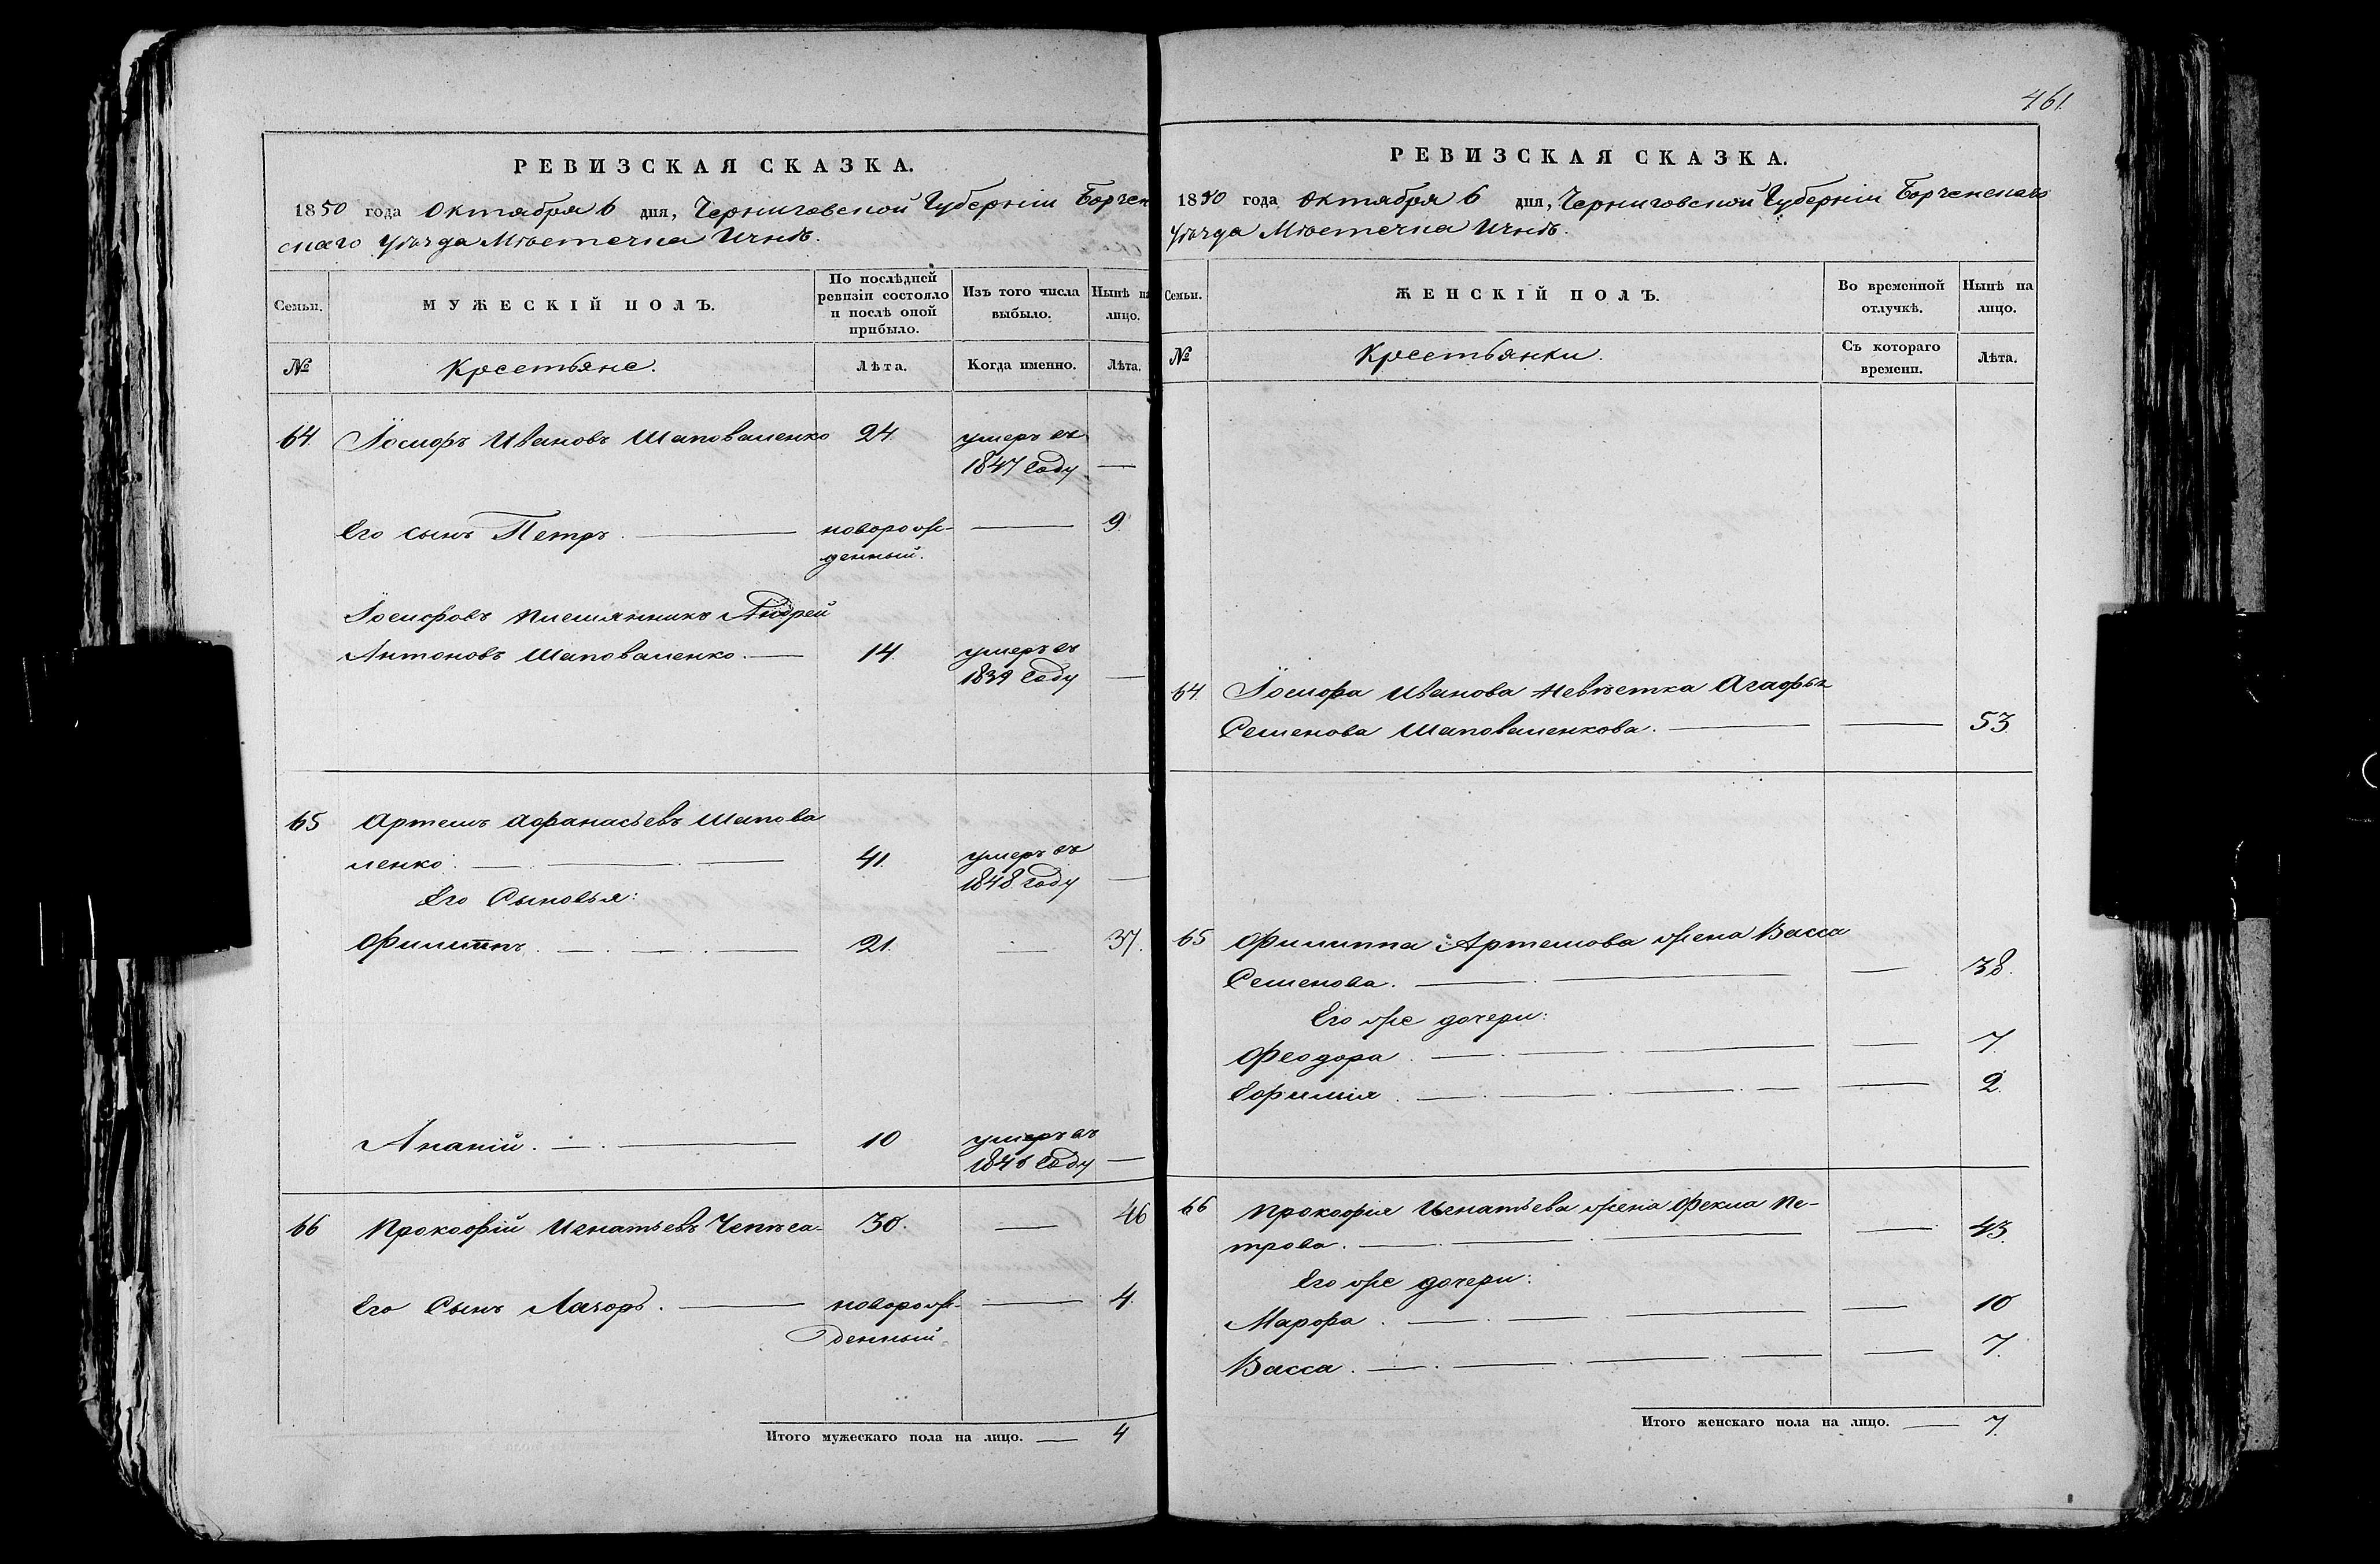 РЕВИЗСКАЯ СКАЗКА.
1850 года Октября 6 дня, Черниговской Губерніи Борзен
скаго Уѣзда Мѣстечка Ичнѣ.
Семьи. МУЖЕСКІЙ ПОЛЪ. По послѣдней ревизіи состояло и послѣ оной прибыло. Изъ того числа выбыло. Нынѣ на лицо.
№ Крестьяне. Лѣта. Когда именно. Лѣта.
64. Іосифъ Ивановъ Шаповаленко 24. умеръ въ
1847 году —
Его сынъ Петръ. — новорож- — 9.
денный.
Іосифовъ племянникъ Андрей
Антоновъ Шаповаленко. — 14. умеръ въ
1839 году —
65 Артемъ Афанасьевъ Шапова
ленко. — 41. умеръ въ
1848 году —
Его Сыновья:
Филиппъ. — 21. — 37.
Ананій. — 10 умеръ въ
1846 году —
66 Прокофій Игнатьевъ Чепѣга- 30. — 46
Его Сынъ Лазорь. — новорож- — 4.
денный
Итого мужескаго пола на лицо. — 4
461.
РЕВИЗСКАЯ СКАЗКА.
1850 года Октября 6 дня, Черниговской Губерніи Борзенскаго
Уѣзда Мѣстечка Ичнѣ.
Семьи. ЖЕНСКІЙ ПОЛЪ. Во временной отлучкѣ. Нынѣ на лицо.
№ Крестьянки. Съ котораго времени. Лѣта.
64. Іосифа Иванова невѣстка Агафья
Семенова Шаповаленкова. — — 53.
65 Филиппа Артемова жена Васса
Семенова. — — 38.
Его же дочери:
Феодора. — — 7.
Ефимія. — — 2.
66 Прокофія Игнатьева жена Фекла Пе-
трова. — — 43.
Его же дочери:
Марфа. — — 10
Васса. — — 7.
Итого женскаго пола на лицо. — 7.